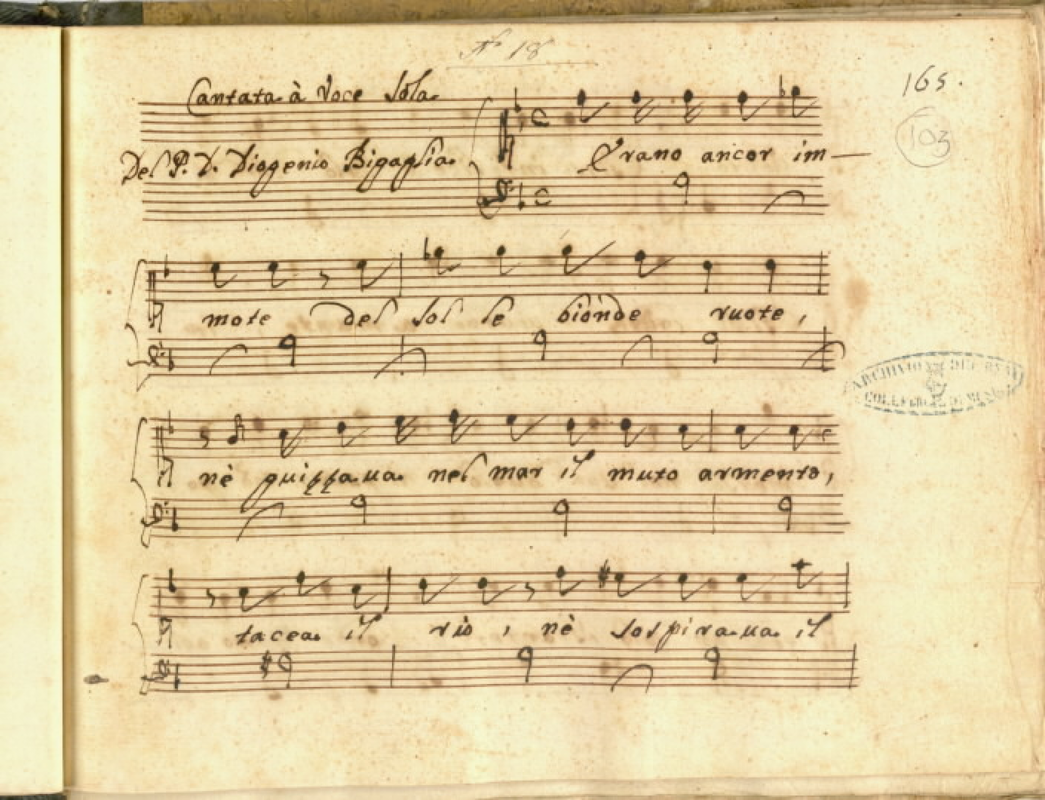 N.º 18
165.
103
Cantata à Voce Sola
Del P. D. Diogenio Bigaglia
Erano ancor im-
mote del sol le bionde ruote,
nè guizzaua nel mar il muto armento,
tacea il rio, nè sospiraua il
ARCHIVIO DEL REAL
COLLEGIO DI MUSICA